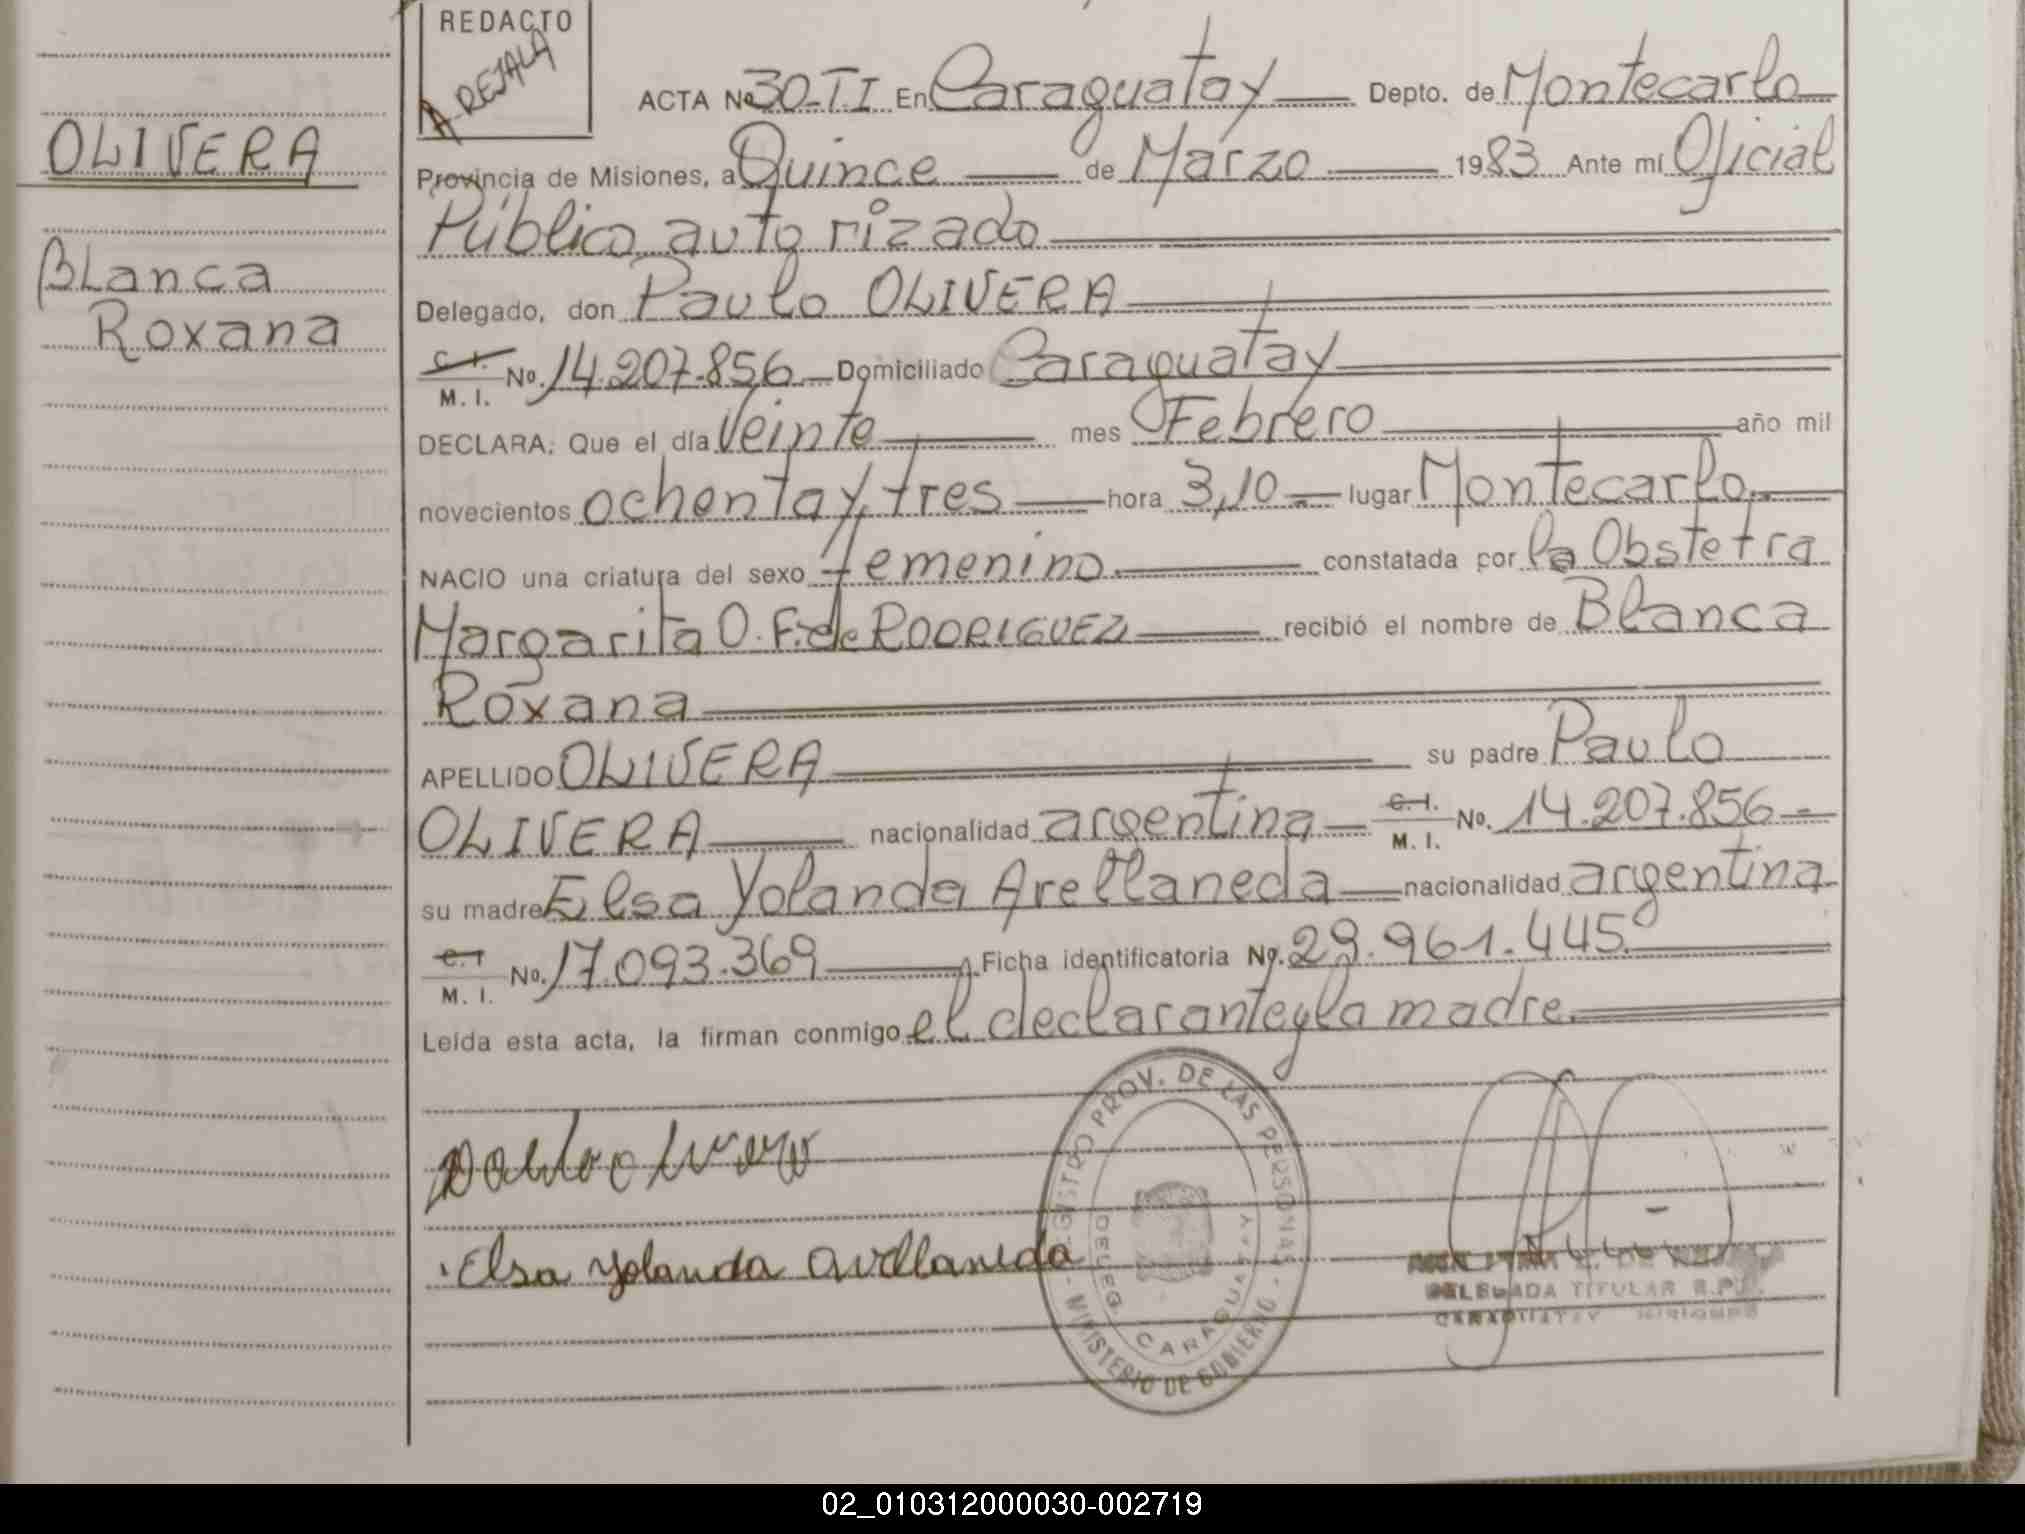 REDACTO
A. REJALA
ACTA No 30-T.I. En Caraguatay Depto. de Montecarlo
OLIVERA
Provincia de Misiones, a Quince de Marzo 1983 Ante mí Oficial
Público autorizado
Blanca
Roxana
Delegado, don Paulo OLIVERA
C. I.
M. I. No. 14.207.856 Domiciliado Caraguatay
DECLARA: Que el día Veinte mes Febrero año mil
novecientos ochenta y tres hora 3,10 lugar Montecarlo
NACIO una criatura del sexo femenino constatada por la Obstetra
Margarita O. F. de RODRIGUEZ recibió el nombre de Blanca
Roxana
APELLIDO OLIVERA su padre Paulo
OLIVERA nacionalidad argentina C. I. M. I. No. 14.207.856
su madre Elsa Yolanda Avellaneda nacionalidad argentina
C. I M. I. No. 17.093.369 Ficha identificatoria No. 29.961.445
Leída esta acta, la firman conmigo el declarante y la madre.
Elsa Yolanda Avellaneda
REGISTRO PROV. DE LAS PERSONAS
MINISTERIO DE GOBIERNO
DELEG. CARAGUATAY
DELEGADA TITULAR R.P.
CARAGUATAY MISIONES
02_010312000030-002719